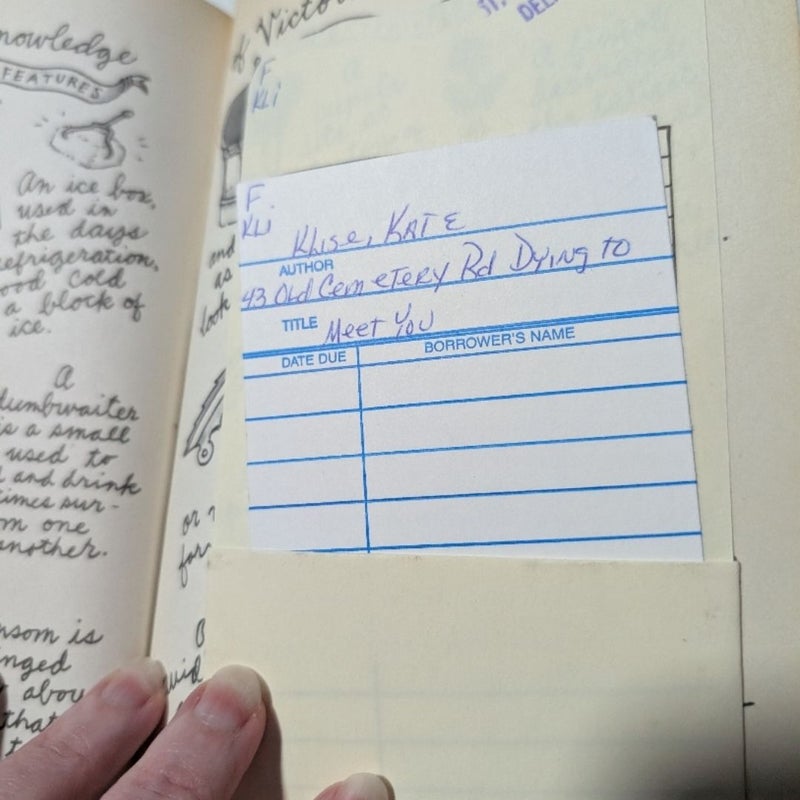 nowledge
FEATURES
An ice box,
used in
the days
efrigeration,
ood cold
a block of
ice.
A
dumbwaiter
is a small
used to
and drink
times sur-
om one
another.
nsom is
nged
abou
that
of Victor
DEL
F
KLi
and
as
look
or
for
F.
KLi
Klise, KATE
AUTHOR
43 Old Cemetery Rd Dying to
TITLE Meet You
DATE DUE BORROWER'S NAME